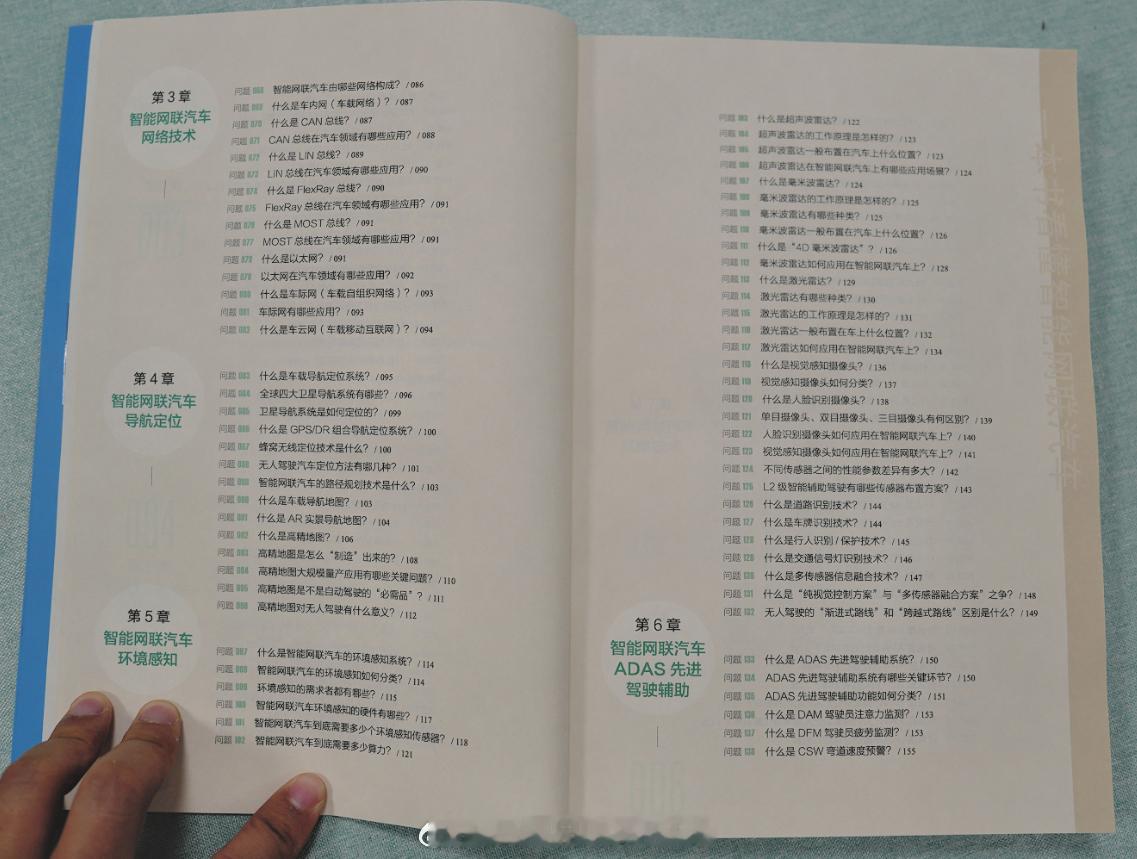 第3章
智能网联汽车
网络技术
问题 068 智能网联汽车由哪些网络构成？ / 086
问题 069 什么是车内网（车载网络）？ / 087
问题 070 什么是 CAN 总线？ / 087
问题 071 CAN 总线在汽车领域有哪些应用？ / 088
问题 072 什么是 LIN 总线？ / 089
问题 073 LIN 总线在汽车领域有哪些应用？ / 090
问题 074 什么是 FlexRay 总线？ / 090
问题 075 FlexRay 总线在汽车领域有哪些应用？ / 091
问题 076 什么是 MOST 总线？ / 091
问题 077 MOST 总线在汽车领域有哪些应用？ / 091
问题 078 什么是以太网？ / 091
问题 079 以太网在汽车领域有哪些应用？ / 092
问题 080 什么是车际网（车载自组织网络）？ / 093
问题 081 车际网有哪些应用？ / 093
问题 082 什么是车云网（车载移动互联网）？ / 094
第4章
智能网联汽车
导航定位
问题 083 什么是车载导航定位系统？ / 095
问题 084 全球四大卫星导航系统有哪些？ / 096
问题 085 卫星导航系统是如何定位的？ / 099
问题 086 什么是 GPS/DR 组合导航定位系统？ / 100
问题 087 蜂窝无线定位技术是什么？ / 100
问题 088 无人驾驶汽车定位方法有哪几种？ / 101
问题 089 智能网联汽车的路径规划技术是什么？ / 103
问题 090 什么是车载导航地图？ / 103
问题 091 什么是 AR 实景导航地图？ / 104
问题 092 什么是高精地图？ / 106
问题 093 高精地图是怎么“制造”出来的？ / 108
问题 094 高精地图大规模量产应用有哪些关键问题？ / 110
问题 095 高精地图是不是自动驾驶的“必需品”？ / 111
问题 096 高精地图对无人驾驶有什么意义？ / 112
第5章
智能网联汽车
环境感知
问题 097 什么是智能网联汽车的环境感知系统？ / 114
问题 098 智能网联汽车的环境感知如何分类？ / 114
问题 099 环境感知的需求者都有哪些？ / 115
问题 100 智能网联汽车环境感知的硬件有哪些？ / 117
问题 101 智能网联汽车到底需要多少个环境感知传感器？ / 118
问题 102 智能网联汽车到底需要多少算力？ / 121
问题 103 什么是超声波雷达？ / 122
问题 104 超声波雷达的工作原理是怎样的？ / 123
问题 105 超声波雷达一般布置在汽车上什么位置？ / 123
问题 106 超声波雷达在智能网联汽车上有哪些应用场景？ / 124
问题 107 什么是毫米波雷达？ / 124
问题 108 毫米波雷达的工作原理是怎样的？ / 125
问题 109 毫米波雷达有哪些种类？ / 125
问题 110 毫米波雷达一般布置在汽车上什么位置？ / 126
问题 111 什么是“4D 毫米波雷达”？ / 126
问题 112 毫米波雷达如何应用在智能网联汽车上？ / 128
问题 113 什么是激光雷达？ / 129
问题 114 激光雷达有哪些种类？ / 130
问题 115 激光雷达的工作原理是怎样的？ / 131
问题 116 激光雷达一般布置在车上什么位置？ / 132
问题 117 激光雷达如何应用在智能网联汽车上？ / 134
问题 118 什么是视觉感知摄像头？ / 136
问题 119 视觉感知摄像头如何分类？ / 137
问题 120 什么是人脸识别摄像头？ / 138
问题 121 单目摄像头、双目摄像头、三目摄像头有何区别？ / 139
问题 122 人脸识别摄像头如何应用在智能网联汽车上？ / 140
问题 123 视觉感知摄像头如何应用在智能网联汽车上？ / 141
问题 124 不同传感器之间的性能参数差异有多大？ / 142
问题 125 L2 级智能辅助驾驶有哪些传感器布置方案？ / 143
问题 126 什么是道路识别技术？ / 144
问题 127 什么是车牌识别技术？ / 144
问题 128 什么是行人识别 / 保护技术？ / 145
问题 129 什么是交通信号灯识别技术？ / 146
问题 130 什么是多传感器信息融合技术？ / 147
问题 131 什么是“纯视觉控制方案”与“多传感器融合方案”之争？ / 148
问题 132 无人驾驶的“渐进式路线”和“跨越式路线”区别是什么？ / 149
第6章
智能网联汽车
ADAS 先进
驾驶辅助
问题 133 什么是 ADAS 先进驾驶辅助系统？ / 150
问题 134 ADAS 先进驾驶辅助系统有哪些关键环节？ / 150
问题 135 ADAS 先进驾驶辅助功能如何分类？ / 151
问题 136 什么是 DAM 驾驶员注意力监测？ / 153
问题 137 什么是 DFM 驾驶员疲劳监测？ / 153
问题 138 什么是 CSW 弯道速度预警？ / 155